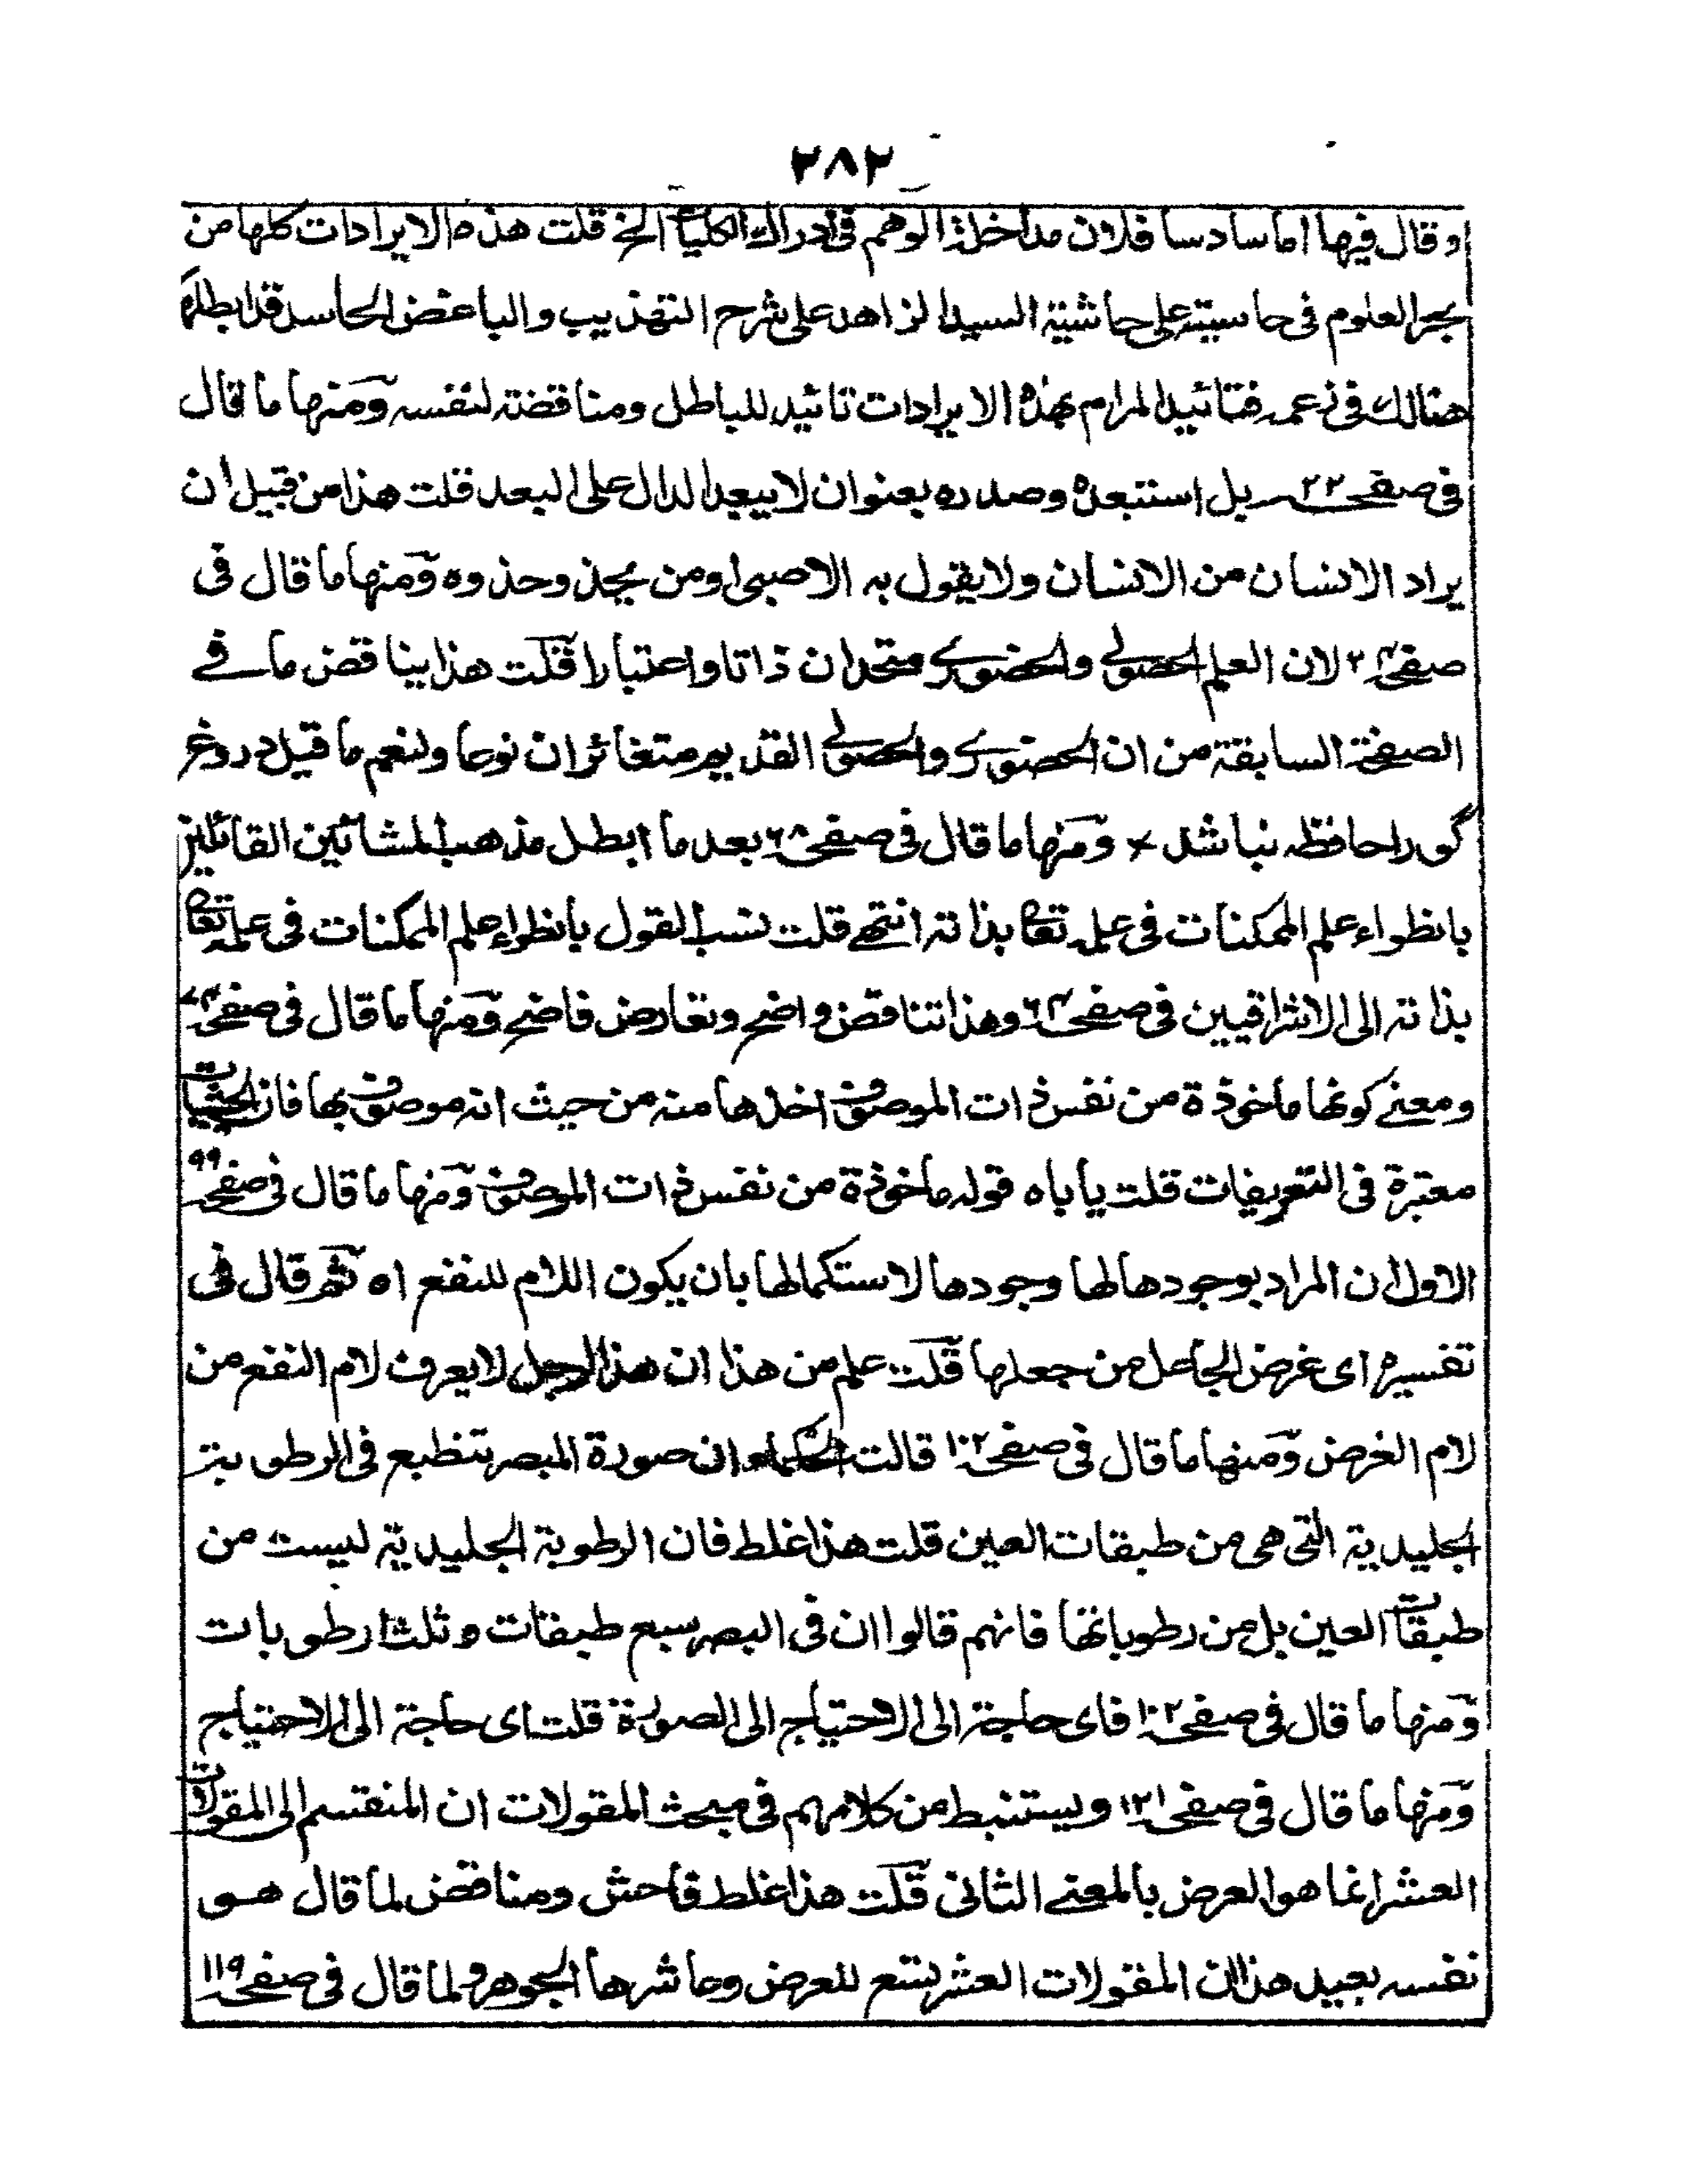 ٢٨٢
وقال فيها اما سادسا فلان مداخلة الوهم فى ادراك الكليات الخ قلت هذه الايرادات كلها من
بحر العلوم فى حاشيته على حاشية السيد الزاهد على شرح التهذيب والباغض الحاسد قد ابطلها
هنالك فى زعمه فتائيد المرام بهذه الايرادات تائيد للباطل ومناقضته لنفسه ومنها ما قال
فى صفحه ٢٢ بل استبعده وصدره بعنوان لا يبعد الدال على البعد قلت هذا من قبيل ان
يراد الانسان من الانسان ولا يقول به الا صبى او من يحذو حذوه ومنها ما قال فى
صفحه لان العلم الحصولى والحضورى متحدان ذاتا واعتبارا قلت هذا يناقض ما فے
الصفحة السابقة من ان الحضورى والحصولى القديم متغائران نوعا ولنعم ما قيل دروغ
گو را حافظه نباشد ومنها ما قال فى صفحه ٦٨ بعد ما ابطل مذهب المشائين القائلين
بانطواء علم الممكنات فى علمه تعالى بذاته انتهى قلت نسب القول بانطواء علم الممكنات فى علمه تعالى
بذاته الى الاشراقيين فى صفحه وهذا تناقض واضح وتعارض فاضح ومنها ما قال فى صفحه
ومعنے كونها ماخوذة من نفس ذات الموصوف اخذها منه من حيث انه موصوف بها فان الحيثيات
معتبرة فى التعريفات قلت ياباه قوله ماخوذة من نفس ذات الموصوف ومنها ما قال فى صفحه ٩٩
الاول ان المراد بوجودها لها وجودها لاستكمالها بان يكون اللام للنفع اه ثم قال فى
تفسيره اى غرض الجاعل من جعلها قلت علم من هذا ان هذا الرجل لا يعرف لام النفع من
لام الغرض ومنها ما قال فى صفحه ١٠٢ قالت الحكماء ان صورة المبصر تنطبع فى الرطوبة
الجليدية التى هى من طبقات العين قلت هذا غلط فان الرطوبة الجليدية ليست من
طبقات العين بل من رطوباتها فانهم قالوا ان فى البصر سبع طبقات وثلث رطوبات
ومنها ما قال فى صفحه ١٠٢ فاى حاجة الى الاحتياج الى الصورة قلت اى حاجة الى الاحتياج
ومنها ما قال فى صفحه ١٢١ ويستنبط من كلامهم فى مبحث المقولات ان المنقسم الى المقولات
العشر انما هو العرض بالمعنے الثانى قلت هذا غلط فاحش ومناقض لما قال هو
نفسه بعيد هذا ان المقولات العشر تسع للعرض وعاشرها الجوهر ولما قال فى صفحه ١١٩